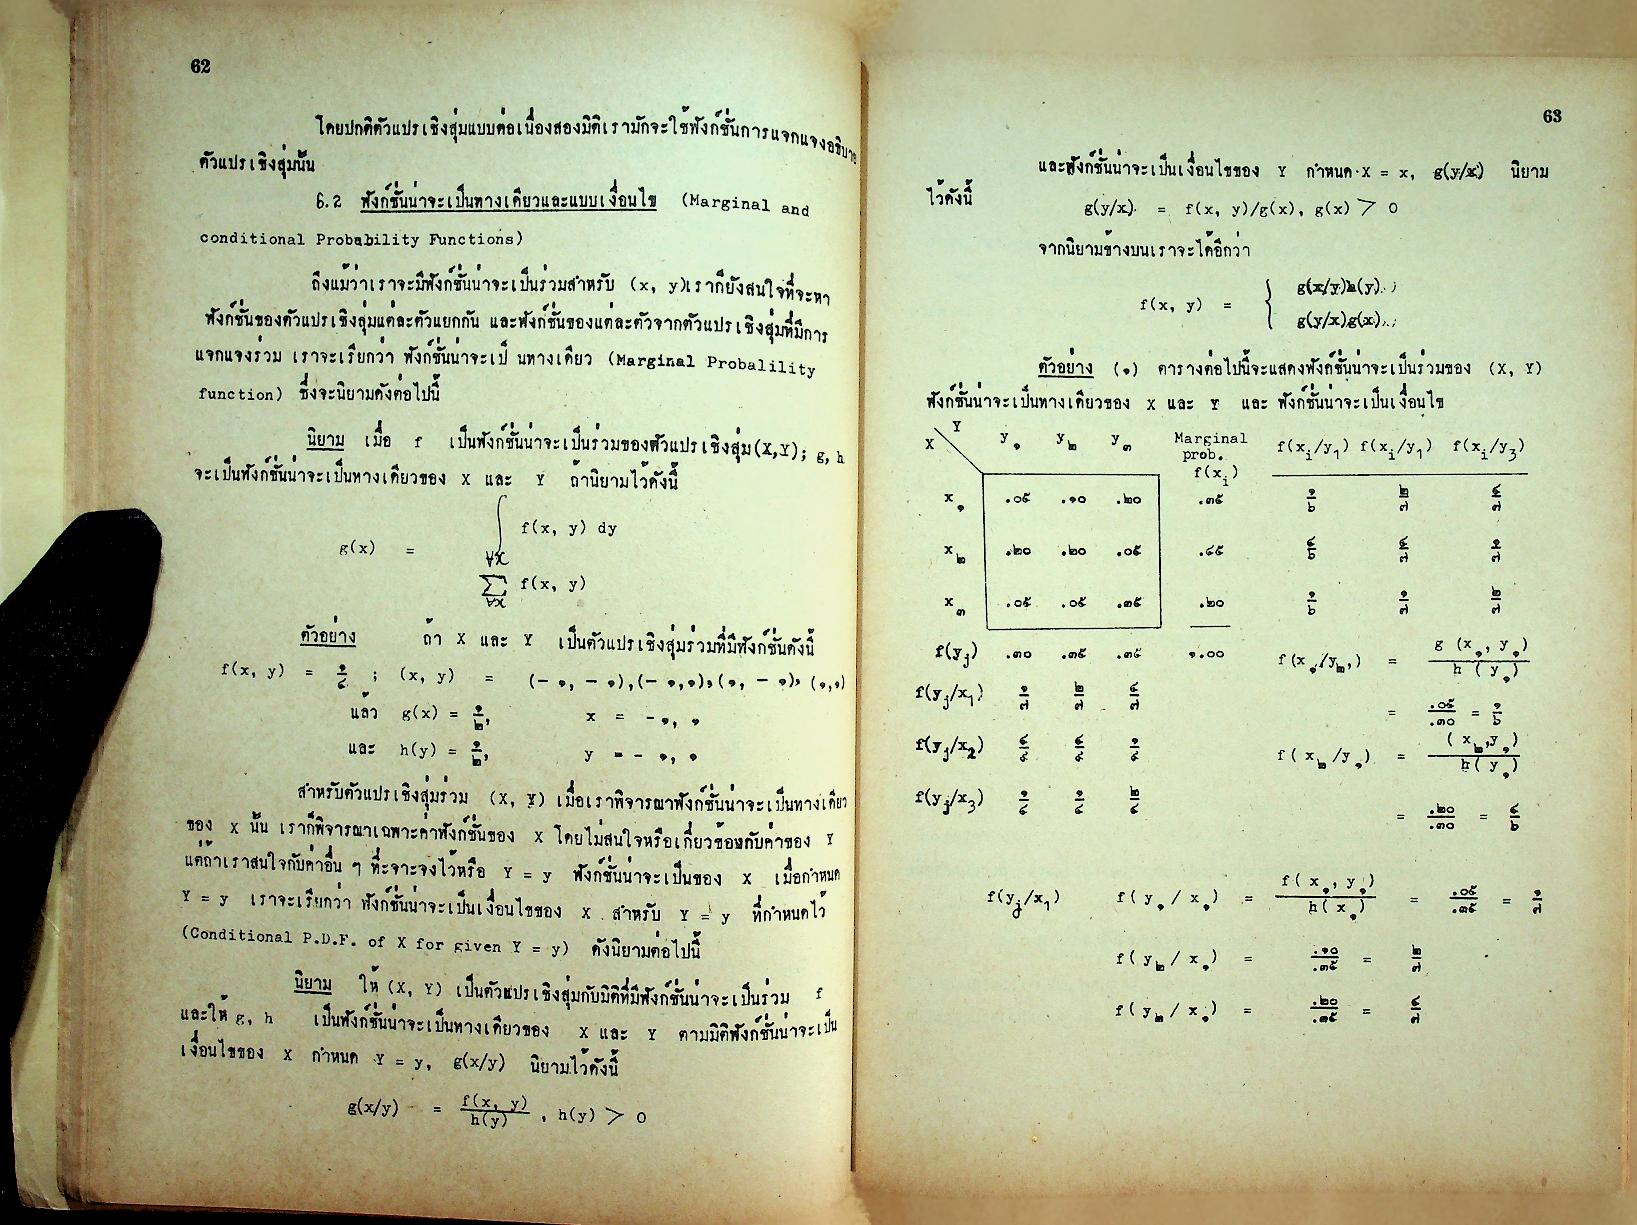 62
โดยปกติตัวแปรเชิงสุ่มแบบต่อเนื่องสองมิติเรามักจะใช้ฟังก์ชั่นการแจกแจงอธิบาย
ตัวแปรเชิงสุ่มนั้น
6.2 ฟังก์ชั่นน่าจะเป็นทางเดียวและแบบเงื่อนไข (Marginal and
conditional Probability Functions)
ถึงแม้ว่าเราจะมีฟังก์ชั่นน่าจะเป็นร่วมสำหรับ (x, y)เราก็ยังสนใจที่จะหา
ฟังก์ชั่นของตัวแปรเชิงสุ่มแต่ละตัวแยกกัน และฟังก์ชั่นของแต่ละตัวจากตัวแปรเชิงสุ่มที่มีการ
แจกแจงร่วม เราจะเรียกว่า ฟังก์ชั่นน่าจะเป็ นทางเดียว (Marginal Probalility
function) ซึ่งจะนิยามดังต่อไปนี้
นิยาม เมื่อ f เป็นฟังก์ชั่นน่าจะเป็นร่วมของตัวแปรเชิงสุ่ม(X,Y); g, h
จะเป็นฟังก์ชั่นน่าจะเป็นทางเดียวของ X และ Y ถ้านิยามไว้ดังนี้
g(x) = ∫∀x f(x, y) dy
∑∀x f(x, y)
ตัวอย่าง ถ้า X และ Y เป็นตัวแปรเชิงสุ่มร่วมที่มีฟังก์ชั่นดังนี้
f(x, y) = ๑/๔ ; (x, y) = (-๑, -๑),(-๑,๑),(๑, -๑), (๑,๑)
แล้ว g(x) = ๑/๒, x = -๑, ๑
และ h(y) = ๑/๒, y = -๑, ๑
สำหรับตัวแปรเชิงสุ่มร่วม (X, Y) เมื่อเราพิจารณาฟังก์ชั่นน่าจะเป็นทางเดียว
ของ X นั้น เราก็พิจารณาเฉพาะค่าฟังก์ชั่นของ X โดยไม่สนใจหรือเกี่ยวข้องกับค่าของ Y
แต่ถ้าเราสนใจกับค่าอื่น ๆ ที่จะจาะจงไว้หรือ Y = y ฟังก์ชั่นน่าจะเป็นของ X เมื่อกำหนด
Y = y เราจะเรียกว่า ฟังก์ชั่นน่าจะเป็นเงื่อนไขของ X สำหรับ Y = y ที่กำหนดไว้
(Conditional P.D.F. of X for given Y = y) ดังนิยามต่อไปนี้
นิยาม ให้ (X, Y) เป็นตัวแปรเชิงสุ่มกับมิติที่มีฟังก์ชั่นน่าจะเป็นร่วม f
และให้ g, h เป็นฟังก์ชั่นน่าจะเป็นทางเดียวของ X และ Y ตามมิติฟังก์ชั่นน่าจะเป็น
เงื่อนไขของ X กำหนด Y = y, g(x/y) นิยามไว้ดังนี้
g(x/y) = f(x, y)/h(y) , h(y) > 0
63
และฟังก์ชั่นน่าจะเป็นเงื่อนไขของ Y กำหนด X = x, g(y/x) นิยาม
ไว้ดังนี้
g(y/x) = f(x, y)/g(x), g(x) > 0
จากนิยามข้างบนเราจะได้อีกว่า
f(x, y) = { g(x/y)h(y) ;
g(y/x)g(x) ;
ตัวอย่าง (๑) ตารางต่อไปนี้จะแสดงฟังก์ชั่นน่าจะเป็นร่วมของ (X, Y)
ฟังก์ชั่นน่าจะเป็นทางเดียวของ X และ Y และ ฟังก์ชั่นน่าจะเป็นเงื่อนไข
X Y y๑ y๒ y๓ Marginal prob. f(xi) f(xi/y1) f(xi/y1) f(xi/y3)
x๑ .๐๕ .๑๐ .๒๐ .๓๕ ๑/๖ ๒/๗ ๔/๗
x๒ .๒๐ .๒๐ .๐๕ .๔๕ ๔/๖ ๔/๗ ๑/๗
x๓ .๐๕ .๐๕ .๓๕ .๒๐ ๑/๖ ๑/๗ ๒/๗
f(yj) .๓๐ .๓๕ .๓๕ ๑.๐๐
f(yj/x1) ๑/๗ ๒/๗ ๔/๗
f(yj/x2) ๔/๙ ๔/๙ ๑/๙
f(yj/x3) ๑/๔ ๑/๔ ๒/๔
f(x๑/y๒,) = g (x๑, y๑)/h (y๑)
= .๐๕/.๓๐ = ๑/๖
f( x๒/y๑) = ( x๒,y๑)/h( y๑)
= .๒๐/.๓๐ = ๔/๖
f(yj/x1) f( y๑/ x๑) = f( x๑, y๑)/h( x๑) = .๐๕/.๓๕ = ๑/๗
f( y๒/ x๑) = .๑๐/.๓๕ = ๒/๗
f( y๒/ x๑) = .๒๐/.๓๕ = ๔/๗